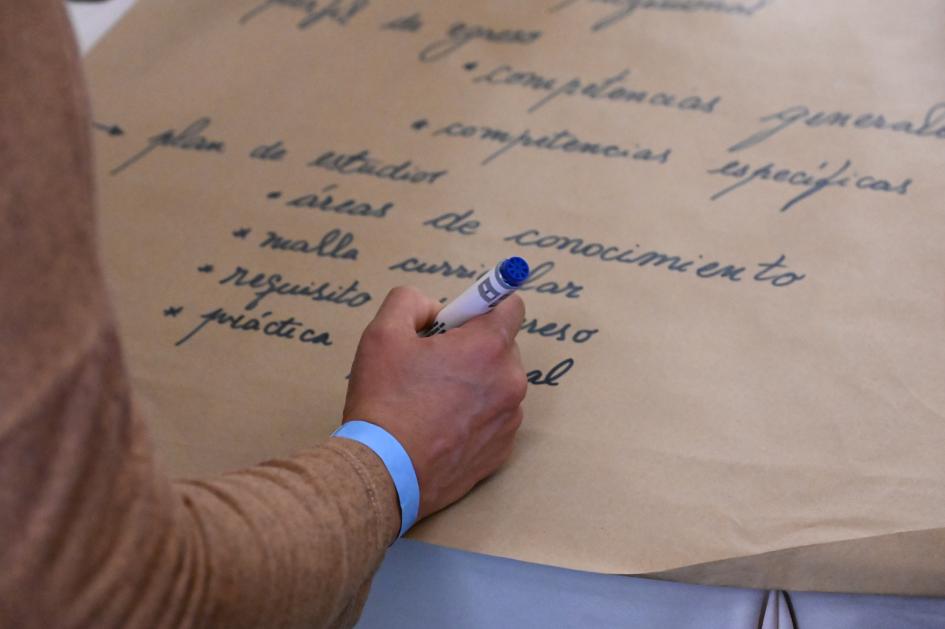 perfil de egreso
* competencias general
* competencias específicas
→ plan de estudios
* áreas de conocimiento
* malla
* requisito
* práctica